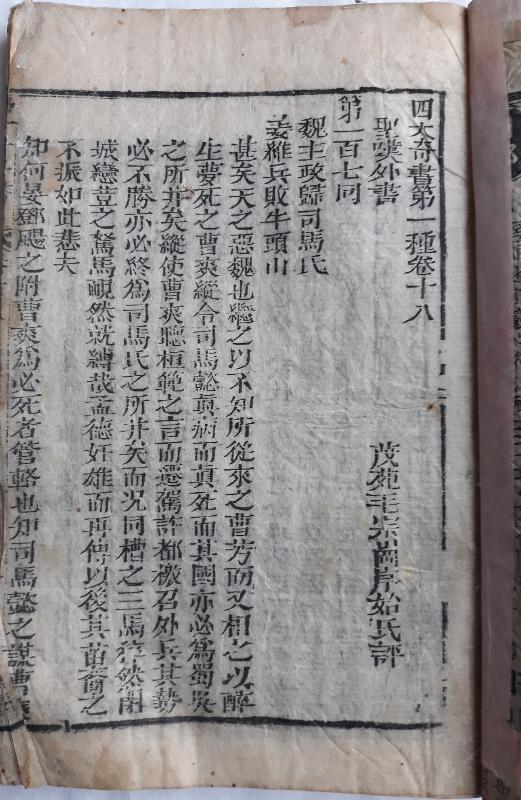 四大奇書第一種卷十八
聖嘆外書
茂苑毛宗崗序始氏評
第一百七回
魏主政歸司馬氏
姜維兵敗牛頭山
甚矣天之惡魏也繼之以不知所從來之曹芳而又相之以醉
生夢死之曹爽縱令司馬懿真病而真死而其國亦必爲蜀吳
之所并矣縱使曹爽聽桓範之言而遷駕許都檄召外兵其勢
必不勝亦必終爲司馬氏之所并矣而况同槽之三馬猝然閉
城戀荳之駑馬靦然就縛哉孟德奸雄而再傳以後其苗裔之
不振如此悲夫
知何晏鄧颺之附曹爽爲必死者管輅也知司馬懿之謀曹